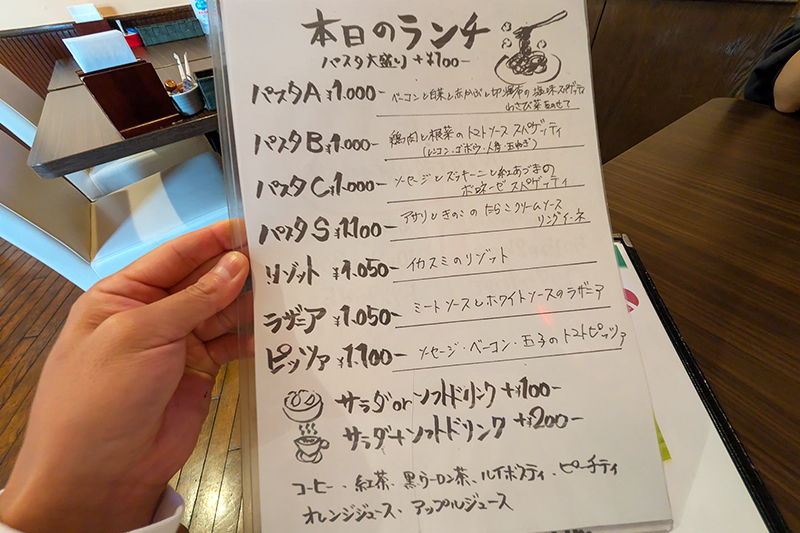 本日のランチ
パスタ大盛り +¥100-
パスタA ¥1.000- ベーコンと白菜とあかかぶと切り昆布の塩味スパゲッティ
わさび菜をのせて
パスタB ¥1.000- 鶏肉と根菜のトマトソース スパゲッティ
(レンコン・ゴボウ・人参・玉ねぎ)
パスタC ¥1.000- ソーセージとズッキーニと紅あづまの
ボロネーゼ スパゲッティ
パスタS ¥1.100- アサリときのこの たらこクリームソース
リングイーネ
リゾット ¥1.050- イカスミのリゾット
ラザニア ¥1.050- ミートソースとホワイトソースのラザニア
ピッツァ ¥1.100- ソーセージ・ベーコン・玉子のトマトピッツァ
サラダorソフトドリンク +¥100-
サラダ+ソフトドリンク +¥200-
コーヒー、紅茶、黒ウーロン茶、ルイボスティ、ピーチティ
オレンジジュース、アップルジュース